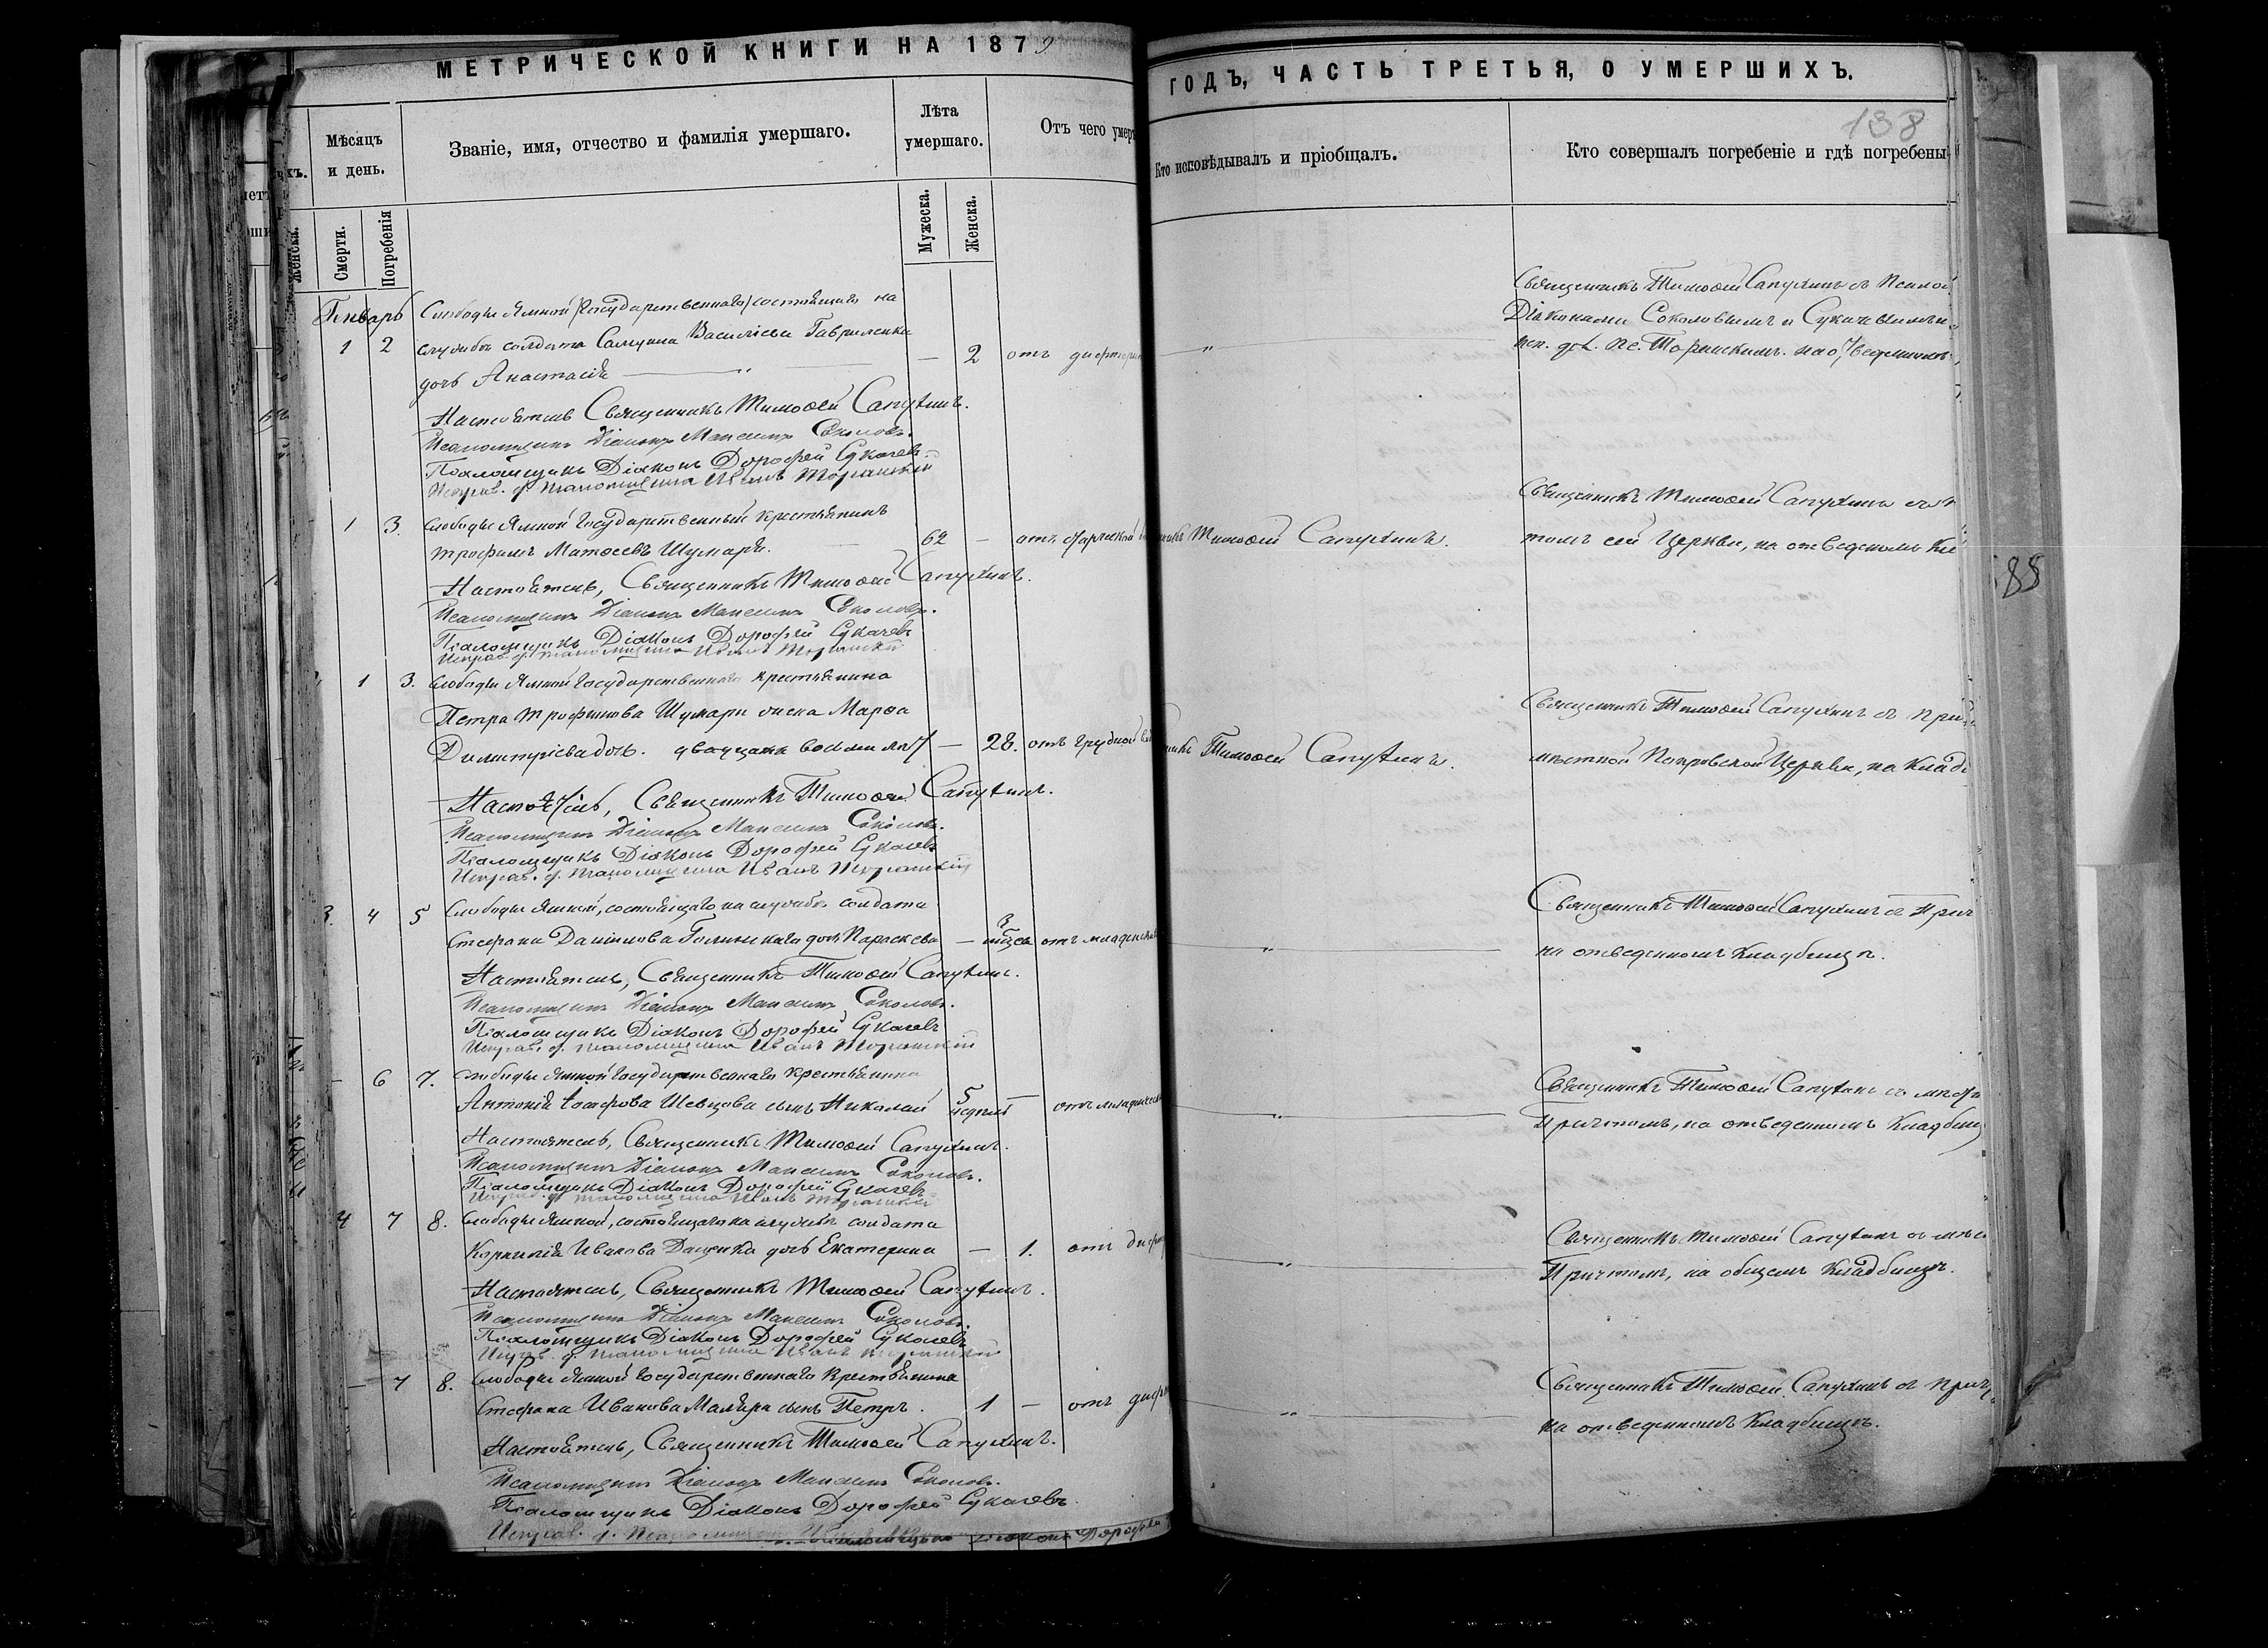 МЕТРИЧЕСКОЙ КНИГИ НА 1879
Мѣсяцъ и день.
Званіе, имя, отчество и фамилія умершаго.
Лѣта умершаго.
Отъ чего умер
Женска.
Смерти.
Погребенія
Мужеска.
Женска.
Генварь Слободы Ямной (Государственнаго) состоящаго на
1 2 службѣ солдата Самуила Василіева Гавриленка
дочь Анастасія — 2 отъ дифтери
Настоятель Священникъ Тимоѳей Сапухинъ.
Псаломщикъ Діаконъ Максимъ Соколовъ.
Псаломщикъ Діаконъ Дорофей Сукачевъ
Исправ. д. псаломщика Иванъ Торанскій
1 3. Слободы Ямной Государственный крестьянинъ
Трофимъ Матѳеевъ Шумара. 62 — отъ
Настоятель, Священникъ Тимоѳей Сапухинъ.
Псаломщикъ Діаконъ Максимъ Соколовъ.
Псаломщикъ Діаконъ Дорофей Сукачевъ
Исправ. д. псаломщика Иванъ Торанскій
1 3. Слободы Ямной Государственнаго крестьянина
Петра Трофимова Шумары жена Марѳа
Димитріева дочь. двадцати восьми лѣтъ — 28. отъ грудной
Настоятель, Священникъ Тимоѳей Сапухинъ.
Псаломщикъ Діаконъ Максимъ Соколовъ.
Псаломщикъ Діаконъ Дорофей Сукачевъ
Исправ. д. псаломщика Иванъ Торанскій
3. 4 5 Слободы Ямной, состоящаго на службѣ солдата
Стефана Даніилова дочь Параскева — 3 мѣсяц отъ младенческ
Настоятель, Священникъ Тимоѳей Сапухинъ.
Псаломщикъ Діаконъ Максимъ Соколовъ.
Псаломщикъ Діаконъ Дорофей Сукачевъ
Исправ. д. псаломщика Иванъ Торанскій
— 6 7. Слободы Ямной Государственнаго крестьянина
Антонія Іосифова Шевцова сынъ Николай 5 недѣль — отъ младенческ
Настоятель, Священникъ Тимоѳей Сапухинъ.
Псаломщикъ Діаконъ Максимъ Соколовъ.
Псаломщикъ Діаконъ Дорофей Сукачевъ
Исправ. д. псаломщика Иванъ Торанскій
4 7 8. Слободы Ямной, состоящаго на службѣ солдата
Корнилія Иванова Даценка дочь Екатерина — 1. отъ дифт
Настоятель, Священникъ Тимоѳей Сапухинъ.
Псаломщикъ Діаконъ Максимъ Соколовъ.
Псаломщикъ Діаконъ Дорофей Сукачевъ
Исправ. д. псаломщика Иванъ Торанскій
— 7 8. Слободы Ямной Государственнаго крестьянина
Стефана Иванова Маляра сынъ Петръ. 1 — отъ диф
Настоятель, Священникъ Тимоѳей Сапухинъ.
Псаломщикъ Діаконъ Максимъ Соколовъ.
Псаломщикъ Діаконъ Дорофей Сукачевъ.
Исправ. д. Псаломщика
ГОДЪ, ЧАСТЬ ТРЕТЬЯ, О УМЕРШИХЪ.
138
Кто исповѣдывалъ и пріобщалъ.
Кто совершалъ погребеніе и гдѣ погребены
Священникъ Тимоѳей Сапухинъ съ Псалом
Діаконами Соколовымъ и Сукачевымъ и
исп. дол. пс. Торанскимъ. на отведенномъ
Священникъ Тимоѳей Сапухинъ съ
никъ Тимоѳей Сапухинъ.
томъ сей Церкви, на отведеномъ Кл
85
Священникъ Тимоѳей Сапухинъ съ при
никъ Тимоѳей Сапухинъ.
мѣстной Покровской Церкви, на кладб
Священникъ Тимоѳей Сапухинъ съ прич
на отведенномъ кладбищѣ.
Священникъ Тимоѳей Сапухинъ съ мѣстн
Причтомъ, на отведенномъ Кладбищ
Священникъ Тимоѳей Сапухинъ съ мѣс
Причтомъ, на общемъ Кладбищѣ.
Священникъ Тимоѳей Сапухинъ съ прич
на отведенномъ Кладбищѣ.